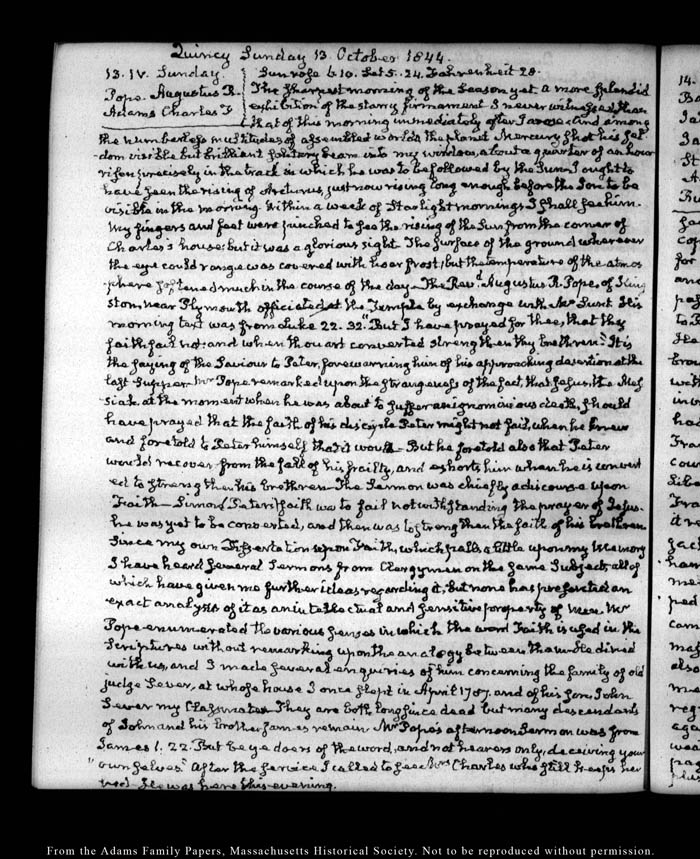 Quincy Sunday 13. October 1844.
13. IV. Sunday. Sun rose 6.10. Set 5.24. Fahrenheit 28.
Pope. Augustus R. The sharpest morning of the Season yet, a more splendid
Adams Charles F exhibition of the starry firmament I never witnessed than
that of this morning immediately after I arose; and among
the numberless multitudes of assembled worlds the planet Mercury shot his sel-
dom visible but brilliant solitary beam into my window, about a quarter of an hour
risen precisely in the track in which he was to be followed by the Sun. I ought to
have seen the rising of Arcturus, just now rising long enough before the Sun to be
visible in the morning. Within a week of Starlight mornings I shall see him.
My fingers and feet were pinched to see the rising of the Sun from the corner of
Charles's house: but it was a glorious sight. The surface of the ground wherever
the eye could range was covered with hoar frost, but the temperature of the atmos
-phere softened much in the course of the day. The Revd. Augustus R. Pope, of King
ston, near Plymouth officiated at the Temple by exchange with Mr Lunt. His
morning text was from Luke 22. 32. "But I have prayed for thee, that thy
faith fail not; and when thou art converted strengthen thy brethren." It is
the saying of the Saviour to Peter, forewarning him of his approaching desertion at the
last Supper. Mr Pope remarked upon the strangeness of the fact, that Jesus, the Mes
-siah at the moment when he was about to suffer an ignominious death, should
have prayed that the faith of his disciple Peter might not fail, when he knew
and foretold to Peter himself that it would. But he foretold also that Peter
would recover from the fall of his frailty, and exhorts him when he is convert
ed to strengthen his brethren. The Sermon was chiefly a discourse upon
Faith. Simon Peter's faith was to fail notwithstanding the prayer of Jesus.
he was yet to be converted, and then was to strengthen the faith of his brethren
Since my own Dissertation upon Faith, which palls a little upon my Memory
I have heard several Sermons from Clergymen on the same Subject, all of
which have given me further ideas regarding it, but none has presented an
exact analysis of it as an intellectual and sensitive property of Man. Mr
Pope enumerated the various senses in which the word Faith is used in the
Scriptures without remarking upon the analogy between them. He dined
with us, and I made several enquiries of him concerning the family of old
judge Sever, at whose house I once slept in April 1787. and of his son John
Sever my Classmate. They are both long since dead but many descendants
of John and his brother James remain. Mr Pope's afternoon Sermon was from
James 1. 22. But be ye doers of the word, and not hearers only, deceiving your
"ownselves." After the service I called to see Mrs Charles who still keeps her
bed. He was here this evening.
From the Adams Family Papers, Massachusetts Historical Society. Not to be reproduced without permission.